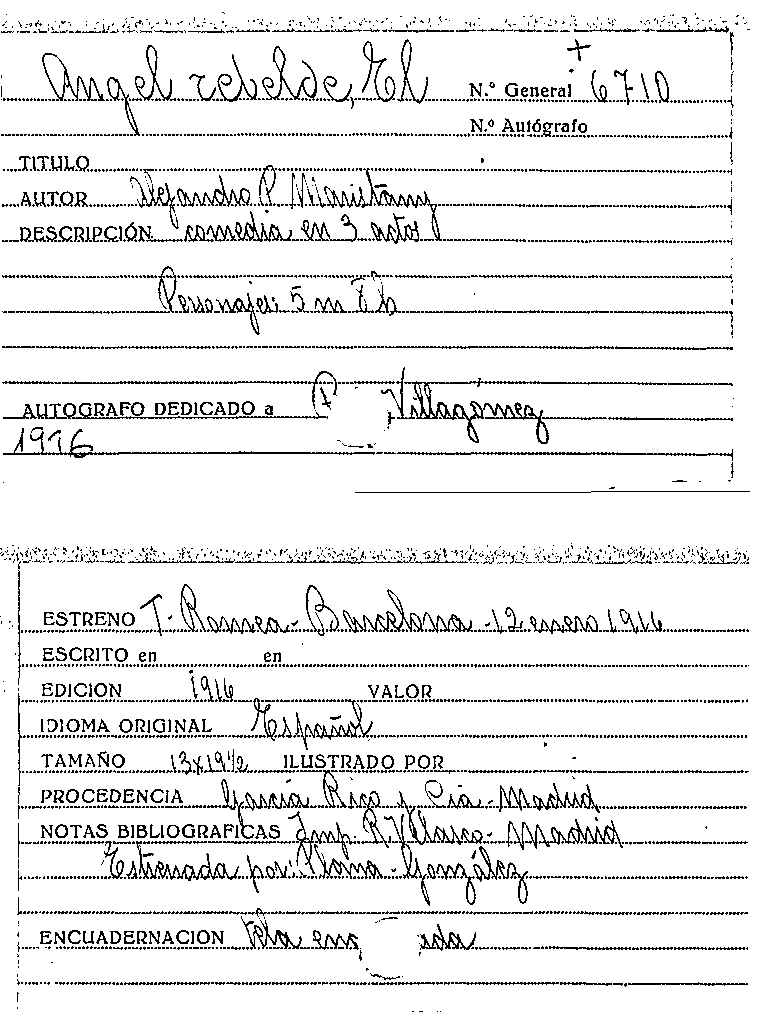 Angel rebelde, El
+
N.º General 6710
N.º Autógrafo
TITULO
AUTOR Alejandro P. Maristany
DESCRIPCIÓN comedia en 3 actos
Personajes: 5 m 7 h
AUTOGRAFO DEDICADO a P. Villagómez
1916
ESTRENO T. Romea - Barcelona - 12 enero 1916
ESCRITO en en
EDICION 1916 VALOR
IDIOMA ORIGINAL Español
TAMAÑO 13x19½ ILUSTRADO POR
PROCEDENCIA García Rico y Cía - Madrid
NOTAS BIBLIOGRAFICAS Imp. R. Velasco - Madrid
Estrenada por: Plana - González
ENCUADERNACION Tela